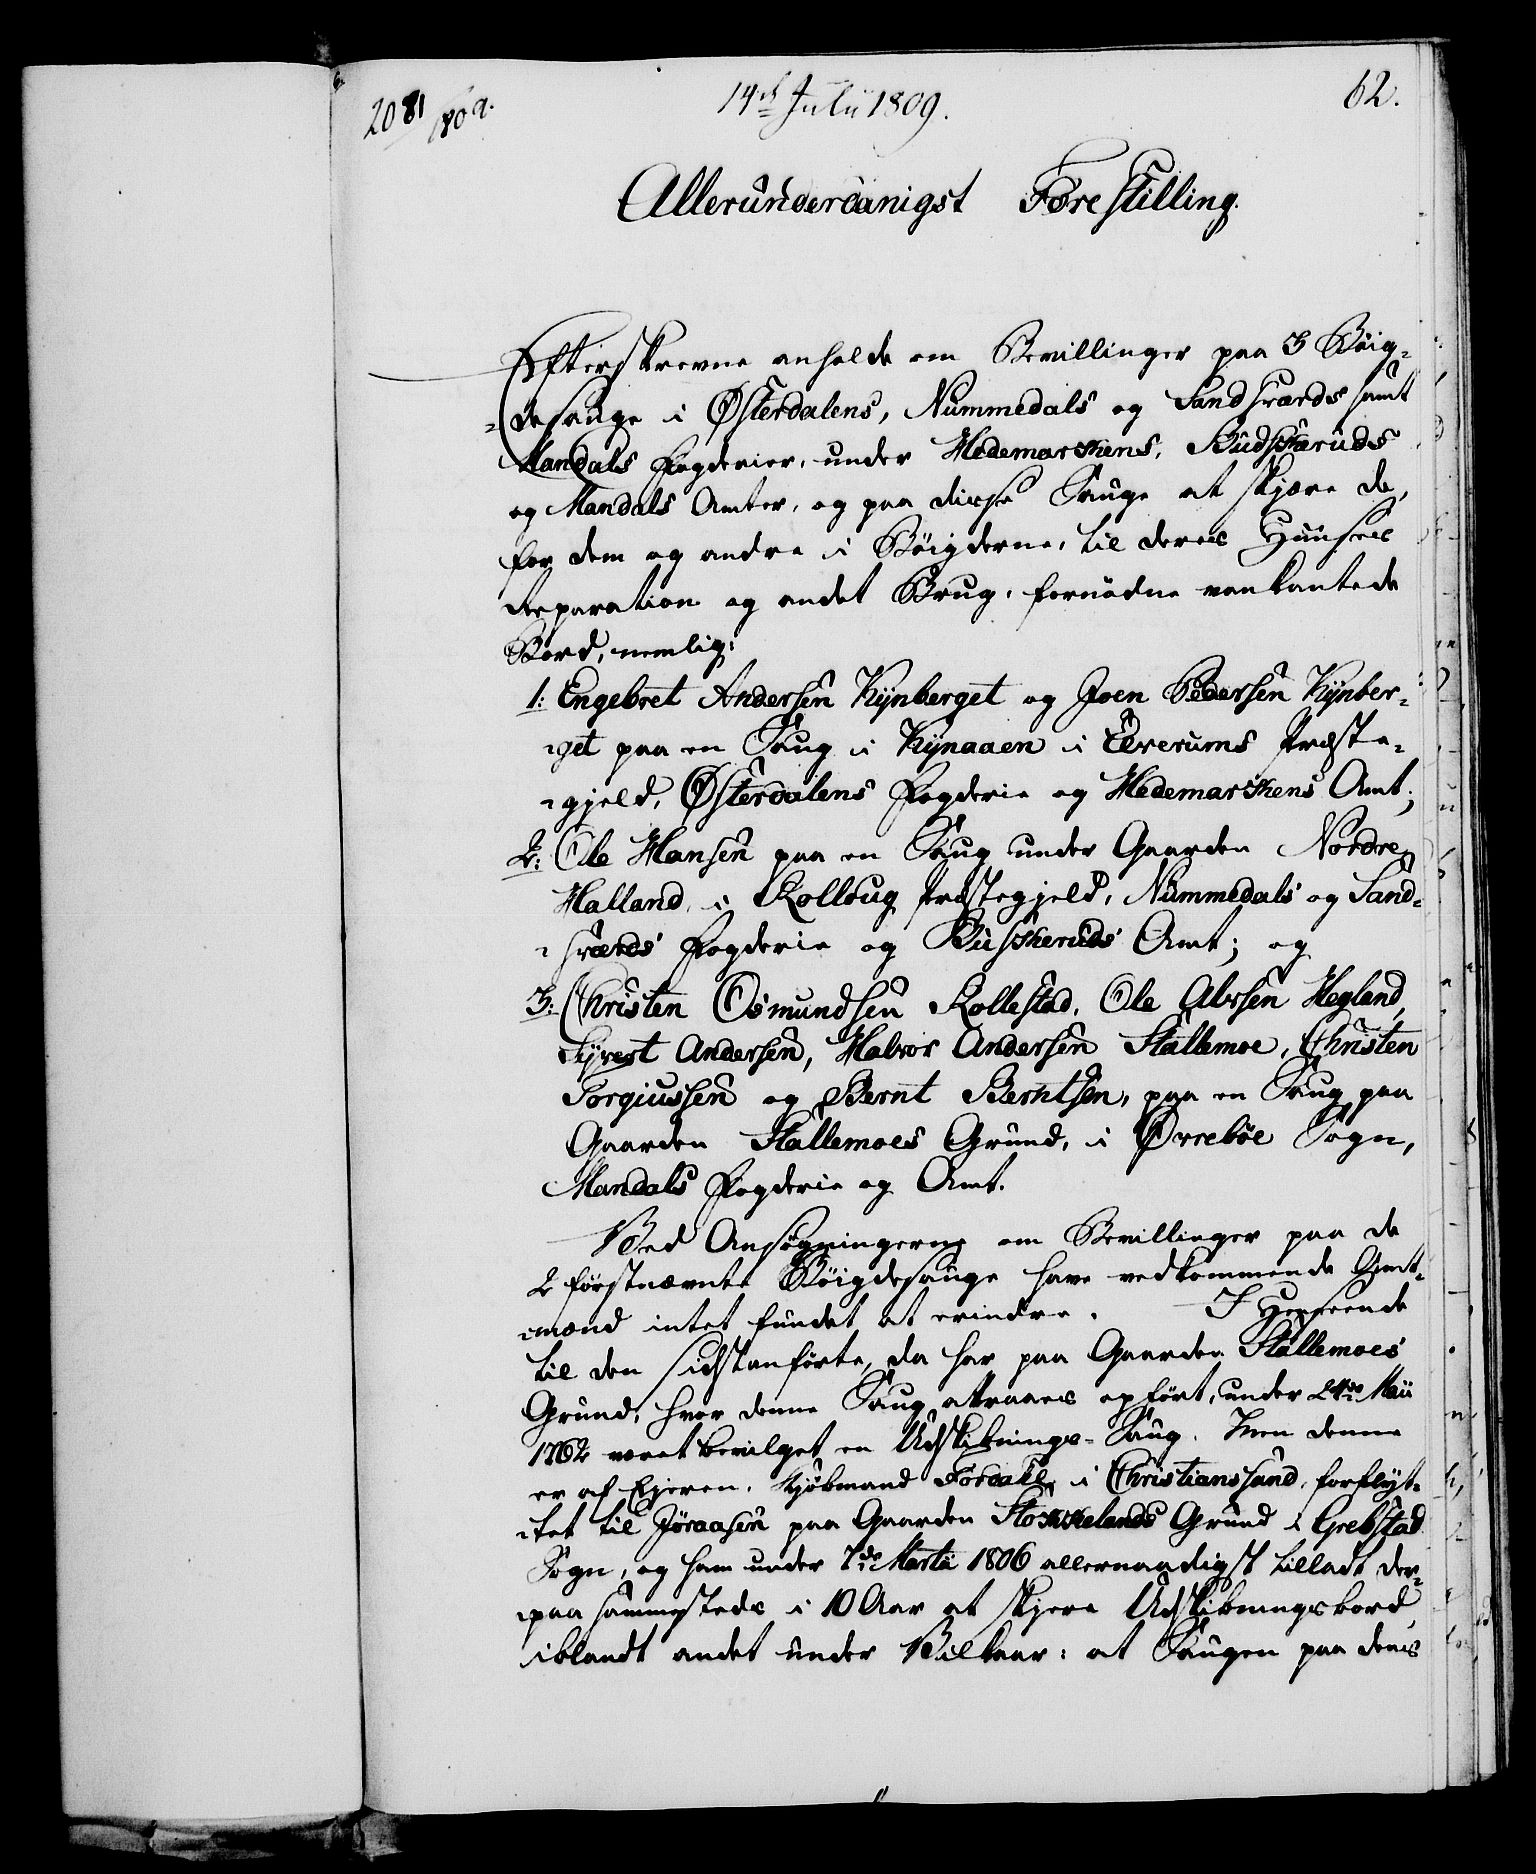 2081/809.
14de Julii 1809.
62.
Allerunderdanigst Forestilling.
Efterskrevne anholde om Bevillinger paa 3 Böig-
-desauge i Østerdalens, Nummedals og Sandsværds samt
Mandals Fogderier, under Hedemarkens, Budskeruds
og Mandals Amter, og paa disse Sauge at skjære de,
for dem og andre i Böigderne, til deres Huuses
Reparation og andet Brug, fornödne vankantede
Bord, nemlig:
1: Engebret Andersen Kÿnberget og Joen Pedersen Kÿnber-
-get paa en Saug i Kÿnaaen i Elverums Præste-
-gjeld, Østerdalens Fogderie og Hedemarkens Amt;
2: Ole Hansen paa en Saug under Gaarden Nordre
Halland, i Rolloug Præstegjeld, Nummedals og Sand-
-sværds Fogderie og Buskeruds Amt; og
3: Christen Osmundsen Rollestad, Ole Alvsen Hegland,
Sÿvert Andersen, Halvor Andersen Stallemoe, Christen
Torgiussen og Bernt Berntsen, paa en Saug paa
Gaarden Stallemoes Grund, i Øvreböe Sogn,
Mandals Fogderie og Amt.
Ved Ansögningerne om Bevillinger paa de
2 förstnævnte Böigdesauge have vedkommende Amt-
-mænd intet fundet at erindre. I Henseende
til den sidstanförte, da har paa Gaarden Stallemoes
Grund, hvor denne Saug attraaes opfört, under 24de Maii
1762 været bevilget en Udskibnings-Saug. Men denne
er af Ejeren, Kjöbmand in Christianssand, forflÿt-
-tet til Jöraasen paa Gaarden Stokkelands Grund i Grebstad
Sogn, og ham under 7de Martii 1806 allernaadigst tilladt der-
-paa sammesteds i 10 Aar at skjere Udskibningsbord,
iblandt andet under Vilkaar: at Saugen paa dens